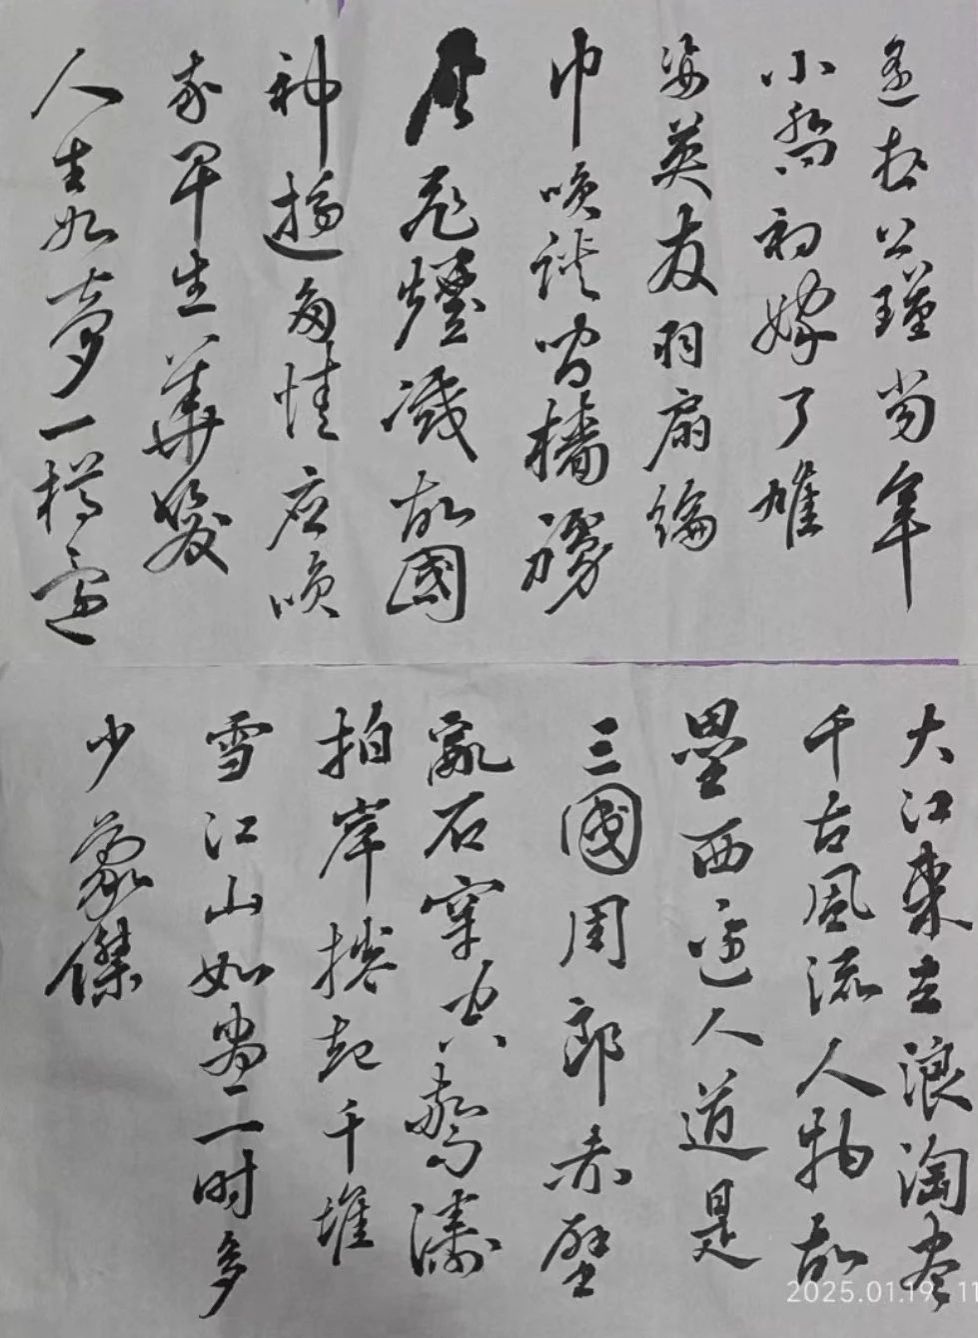 遥想公瑾当年
小喬初嫁了雄
姿英发羽扇綸
巾咲談间檣艣
灰飛煙滅故國
神遊多情应咲
我早生華髮
人生如夢一樽還
大江東去浪淘尽
千古風流人物故
壘西边人道是
三國周郎赤壁
亂石穿空驚濤
拍岸捲起千堆
雪江山如畫一时多
少豪傑
2025.01.19 11